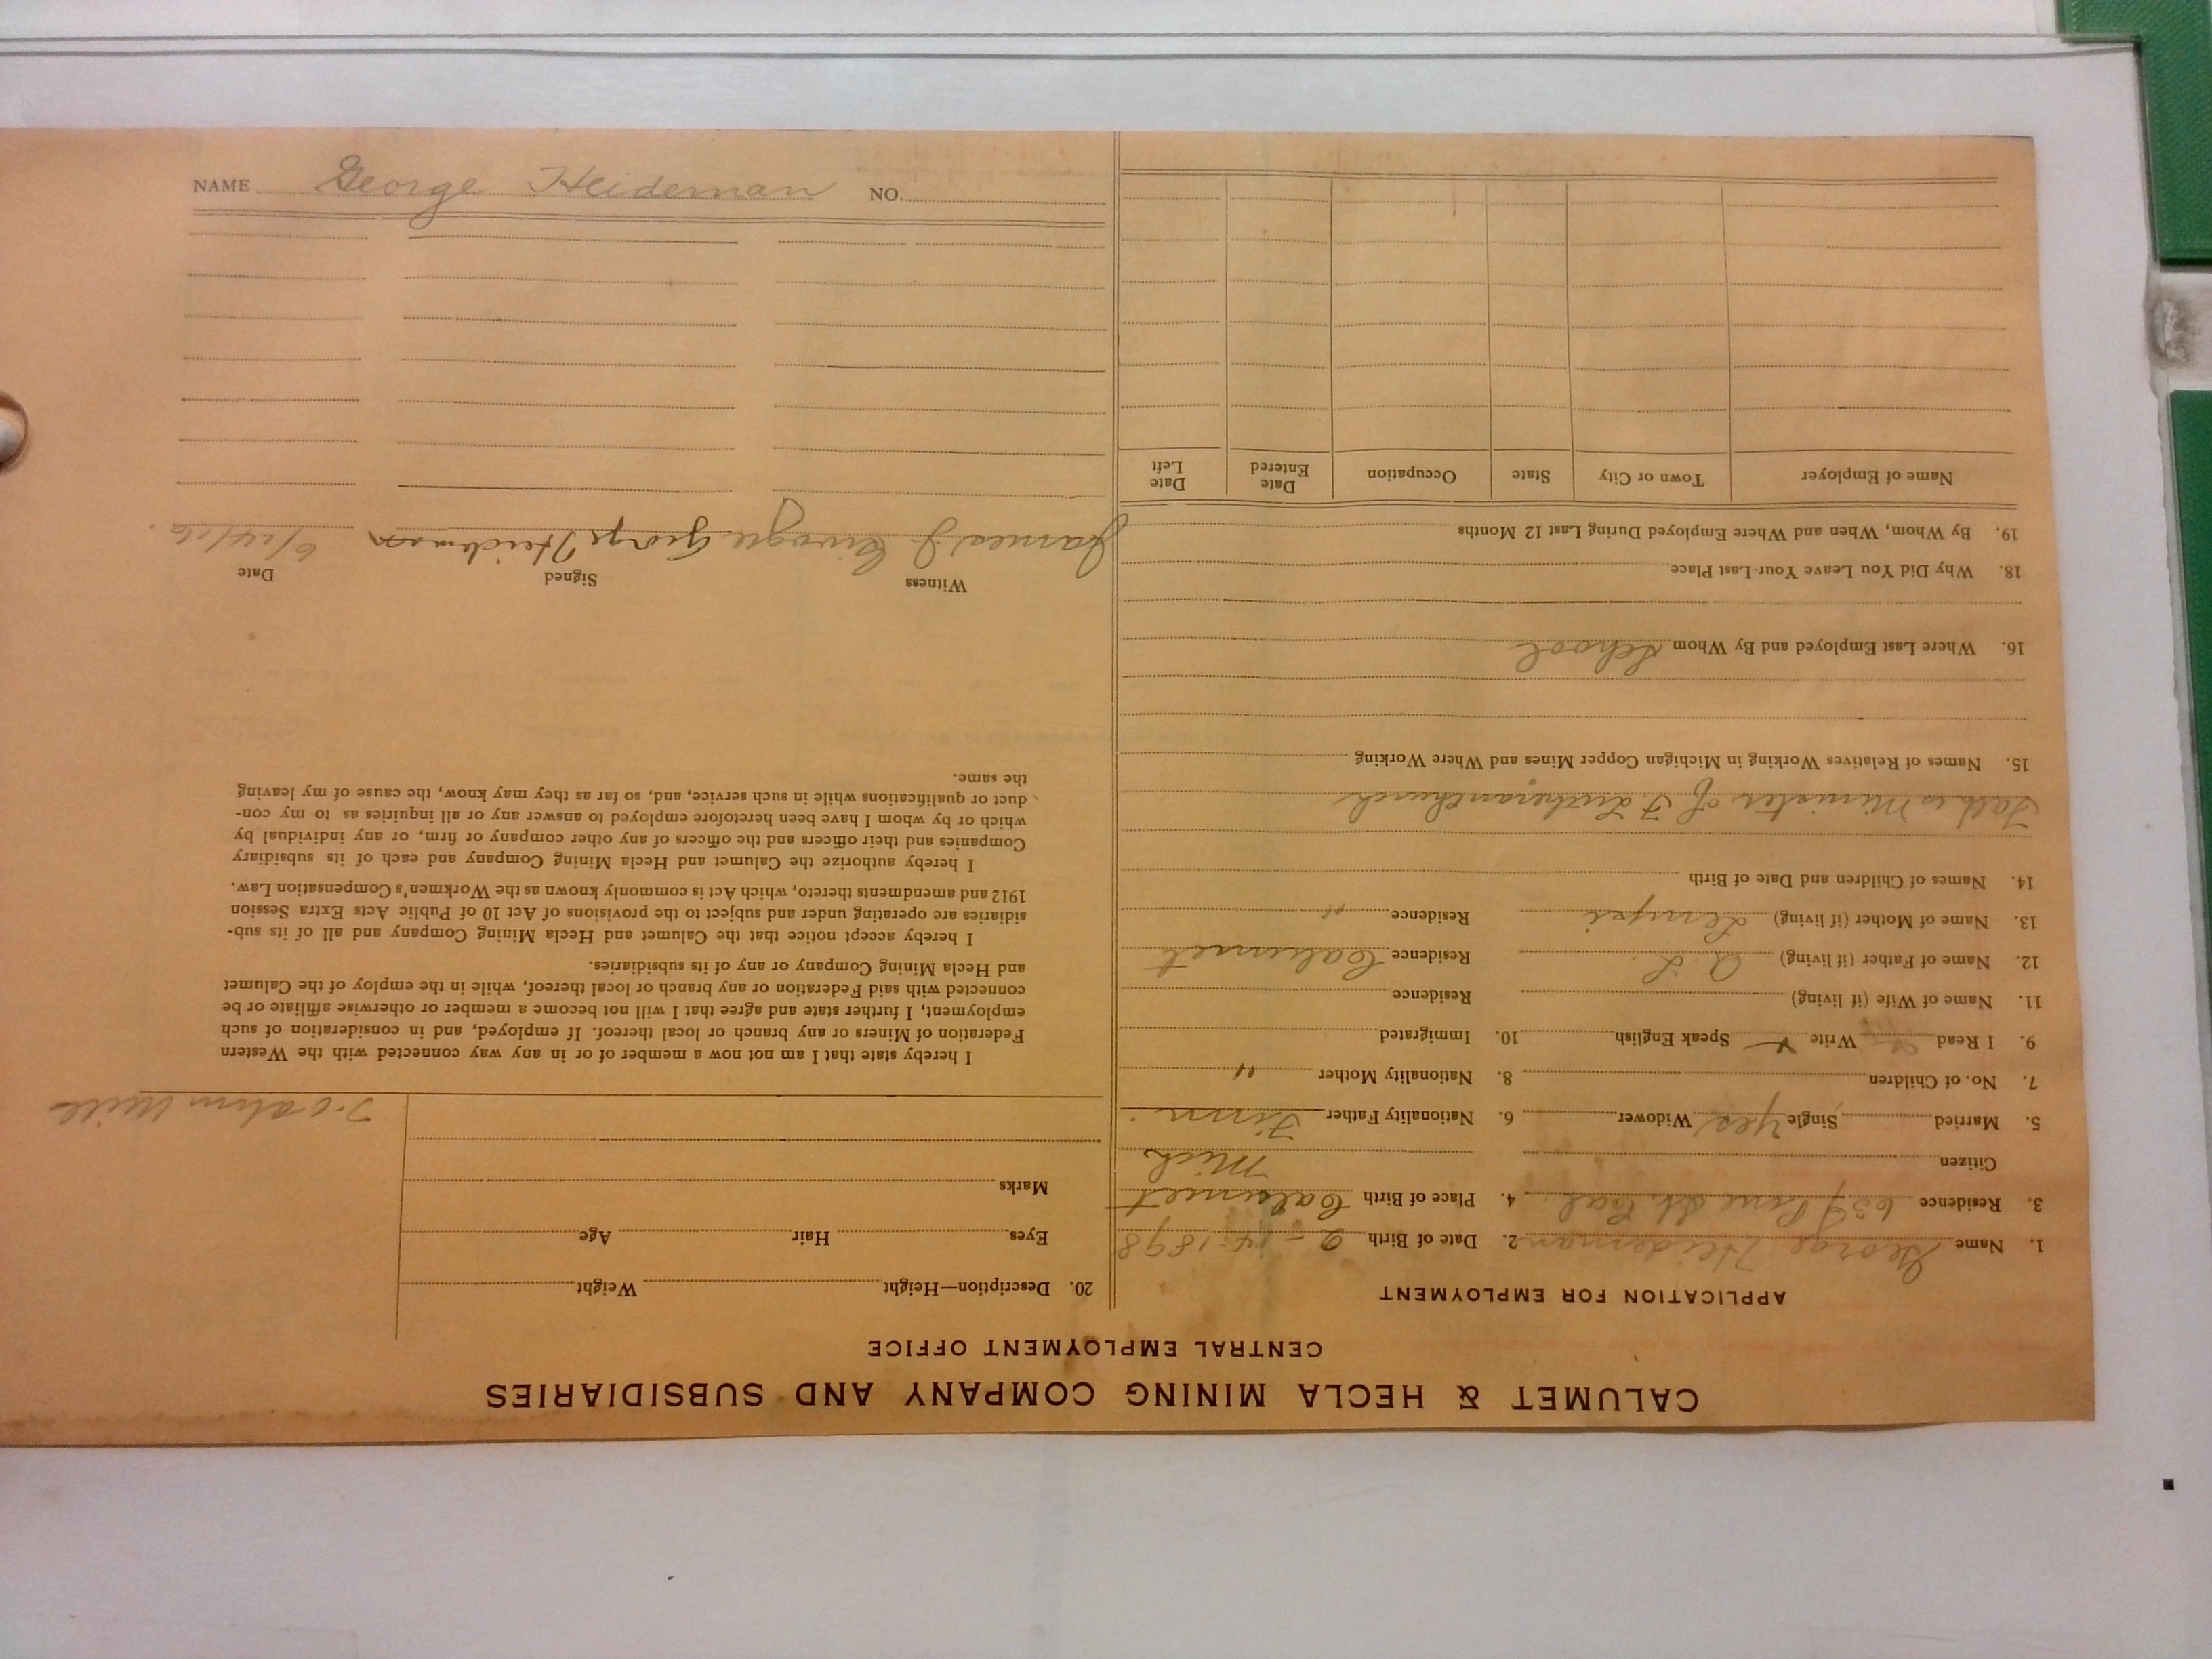 CALUMET & HECLA MINING COMPANY AND SUBSIDIARIES
CENTRAL EMPLOYMENT OFFICE
APPLICATION FOR EMPLOYMENT
1. Name George Heideman 2. Date of Birth 2-14-1898
3. Residence Pine St. Cal 4. Place of Birth Calumet
Citizen Mich
5. Married Single yes Widower 6. Nationality Father Finn
7. No. of Children 8. Nationality Mother "
9. I Read Write Speak English 10. Immigrated
11. Name of Wife (if living) Residence
12. Name of Father (if living) A. L. Residence Calumet
13. Name of Mother (if living) Residence "
14. Names of Children and Date of Birth
Minister of F. Lutheran Church
15. Names of Relatives Working in Michigan Copper Mines and Where Working
16. Where Last Employed and By Whom School
18. Why Did You Leave Your Last Place
19. By Whom, When and Where Employed During Last 12 Months
Name of Employer Town or City State Occupation Date Entered Date Left
20. Description—Height Weight
Eyes Hair Age
Marks
Mill
I hereby state that I am not now a member of or in any way connected with the Western
Federation of Miners or any branch or local thereof. If employed, and in consideration of such
employment, I further state and agree that I will not become a member or otherwise affiliate or be
connected with said Federation or any branch or local thereof, while in the employ of the Calumet
and Hecla Mining Company or any of its subsidiaries.
I hereby accept notice that the Calumet and Hecla Mining Company and all of its sub-
sidiaries are operating under and subject to the provisions of Act 10 of Public Acts Extra Session
1912 and amendments thereto, which Act is commonly known as the Workmen's Compensation Law.
I hereby authorize the Calumet and Hecla Mining Company and each of its subsidiary
Companies and their officers and the officers of any other company or firm, or any individual by
which or by whom I have been heretofore employed to answer any or all inquiries as to my con-
duct or qualifications while in such service, and, so far as they may know, the cause of my leaving
the same.
Witness Signed Date
James J. George Heideman 6/14/16
NAME George Heideman NO.